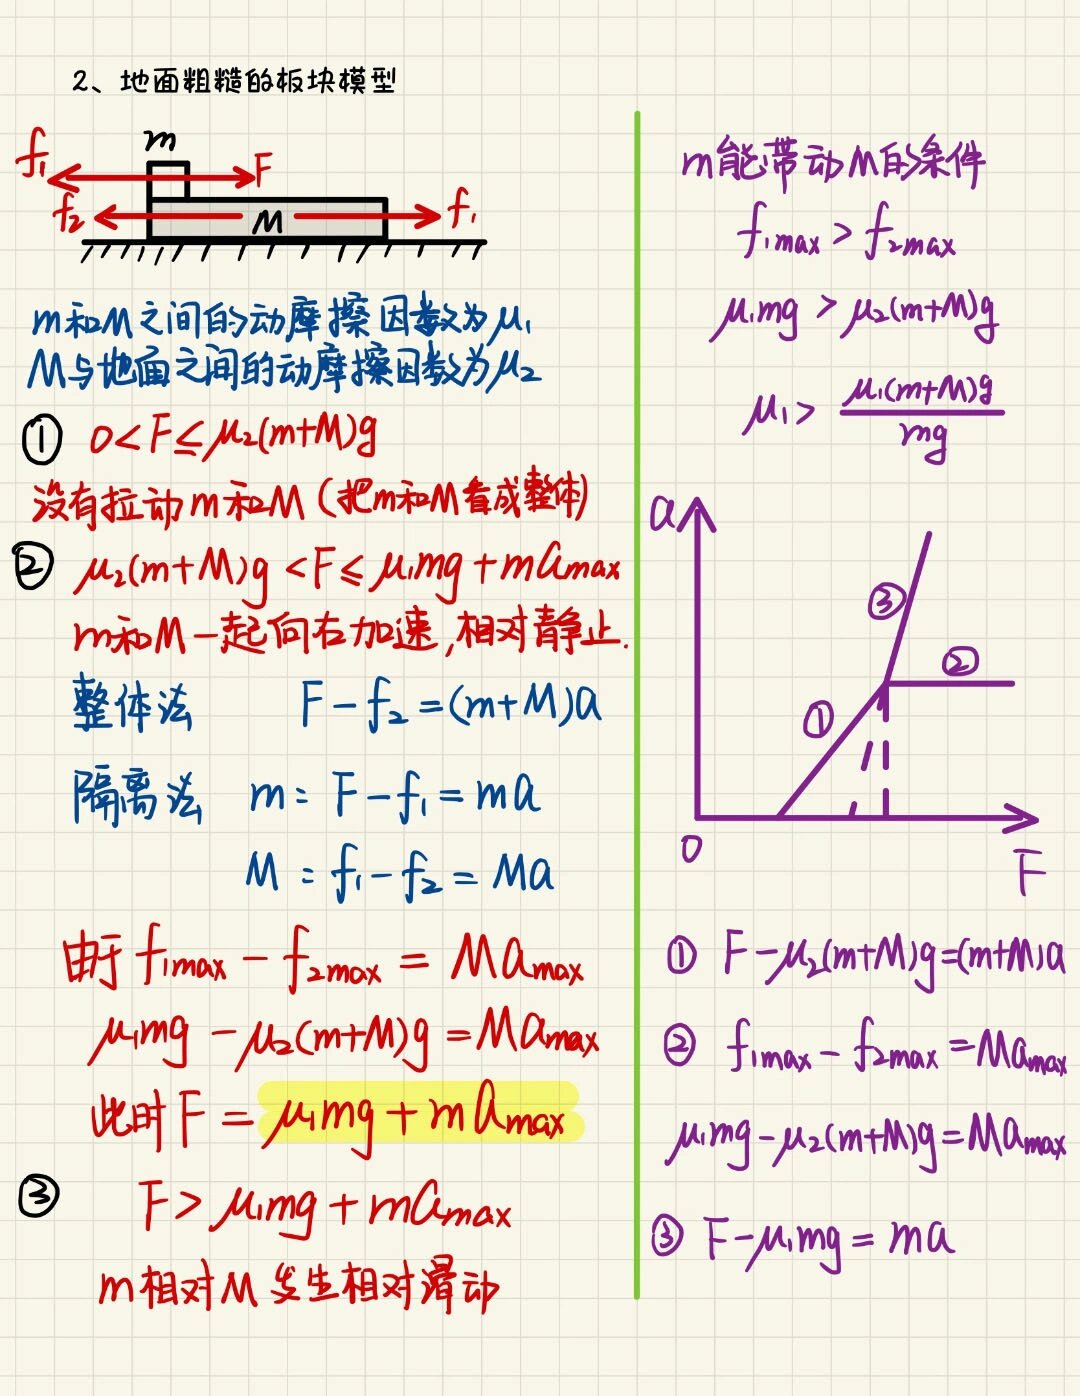 2、地面粗糙的板块模型
m
f₁
F
f₂
M
f₁
m和M之间的动摩擦因数为μ₁
M与地面之间的动摩擦因数为μ₂
① 0<F≤μ₂(m+M)g
没有拉动m和M(把m和M看成整体)
② μ₂(m+M)g<F≤μ₁mg+mamax
m和M一起向右加速,相对静止.
整体法 F-f₂=(m+M)a
隔离法 m: F-f₁=ma
M:f₁-f₂=Ma
由于f₁max-f₂max=Mamax
μ₁mg-μ₂(m+M)g=Mamax
此时F=μ₁mg+mamax
③ F>μ₁mg+mamax
m相对M发生相对滑动
m能带动M的条件
f₁max>f₂max
μ₁mg>μ₂(m+M)g
μ₁>μ₁(m+M)g/mg
a
③
②
①
0
F
① F-μ₂(m+M)g=(m+M)a
② f₁max-f₂max=Mamax
μ₁mg-μ₂(m+M)g=Mamax
③ F-μ₁mg=ma